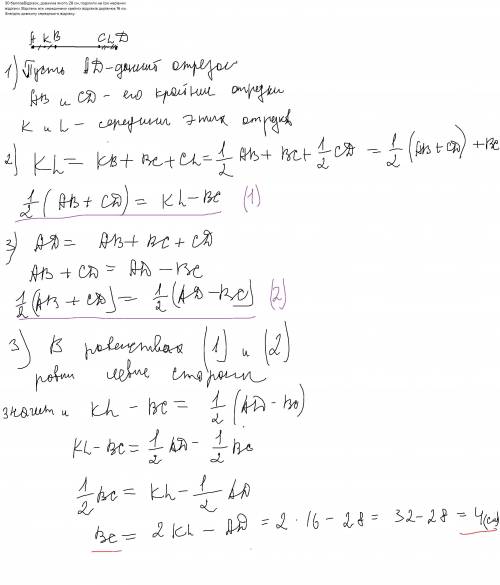 50 баллов!Відрізок, довжина якого 28 см, поділили на три нерівних
відрізки. Відстань між серединами крайніх відрізків дорівнює 16 см.
Знайдіть довжину середнього відрізку.
A K B C L D
1) Пусть AD - данний отрезок
AB и CD - его крайнии отрезки
K и L - середини этих отрезков
2) KL = KB + BC + CL = 1/2 AB + BC + 1/2 CD = 1/2 (AB + CD) + BC
1/2 (AB + CD) = KL - BC (1)
3) AD = AB + BC + CD
AB + CD = AD - BC
1/2 (AB + CD) = 1/2 (AD - BC) (2)
3) В равенствах (1) и (2)
ровни левие стороны
значит и KL - BC = 1/2 (AD - BC)
KL - BC = 1/2 AD - 1/2 BC
1/2 BC = KL - 1/2 AD
BC = 2 KL - AD = 2 · 16 - 28 = 32 - 28 = 4 (см)